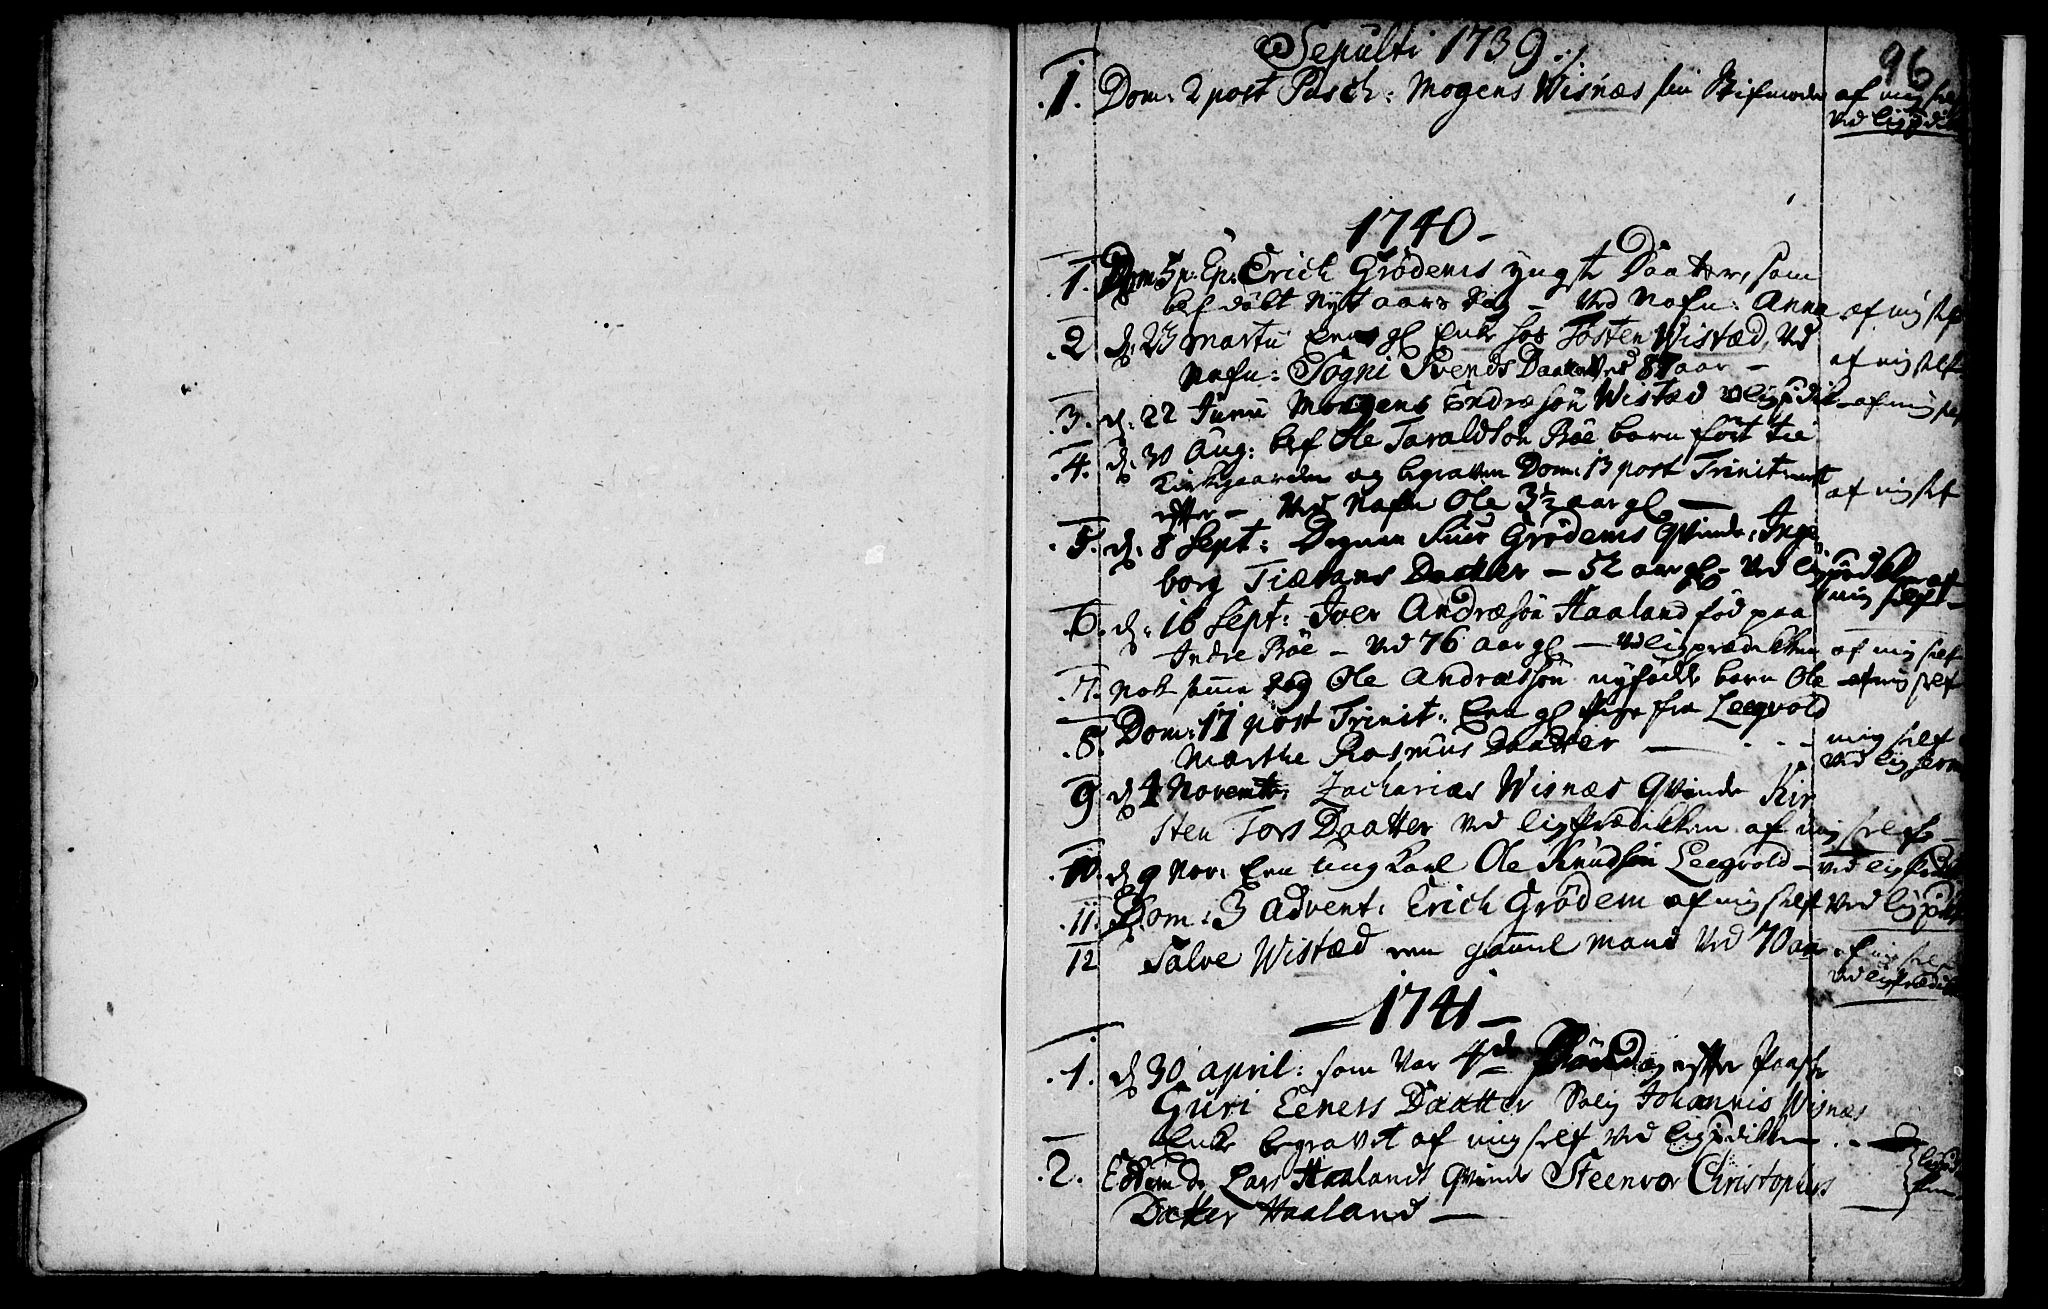 Sepulti 1739
96
1. Dom: 2 post Pasch: Mogens Wisnæs sin Stifmoder af mig self
ved ligpdik
1740
1. Dom: 5 p: Ep: Erich Grödems yngste Daatter, som
blef döbt Nyt aars dag – Ved Nafn: Anna af mig self
2 d. 23 martii Een gl Enke hos Tosten Wistæd, Ved
Nafn: Togni Svends Daatter Ved 87 aar – af mig self
3. d. 22 Junii Mogens Endresön Wistæd v ligpdik af mig self
4. d. 30 Aug: blef Ole Taraldsön Böe barn fört til
Kirkegaarden og begraven Dom: 13 post Trinit nest
efter – Ved Nafn Ole 3½ aar gl – af mig self
5. d. 8 Sept: Siur Grödems Qvinde: Inge
borg Tiærans Daatter – 52 aar gl – Ved ligpdiken af
mig self –
6. d. 16 Sept: Iver Andræsön Haaland föd paa
Indre Böe – Ved 76 aar gl – Ved ligprædikken af mig self
7. Nok samme dag Ole Andræssön nyfödde barn Ole – af mig self
8. Dom: 17 post Trinit: Een gl Pige fra Leegvold
Marthe Rasmus Daatter – mig self
ved lig serm
9 d. 4 Novemb: Zacharias Wisnæs Qvinde Kir
sten Tors Daatter Ved ligprædikken af mig self –
10. d. 9 Nov: Een ung Karl Ole Knudsön Leegvold – ved
11. Dom: 3 Advent: Erich Grödem af mig self Ved ligpdik
12 Salve Wistæd een gammel mand Ved 70 aar af mig self
ved ligprædik
– 1741 –
1. d. 30 april: som Var 4de Söndag effter Paaske
Guri Eeners Daatter Salig Johannis Wisnæs
Enke begravet af mig self Ved ligpdikken
2. Eodem die Lars Haalands Qvinde Steenvor Christophers
Datter Haaland –